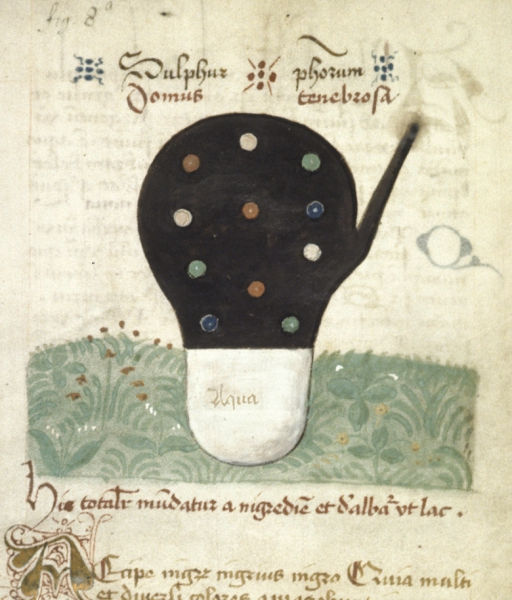 fig. 8ª
Sulphur phorum
Domus tenebrosa
Aqua
Hic totalr mūdatur a nigrediē et d'albaͬ vt lac.
Accipe nigrͫ nigrius nigro Quia multi
et diversi colores